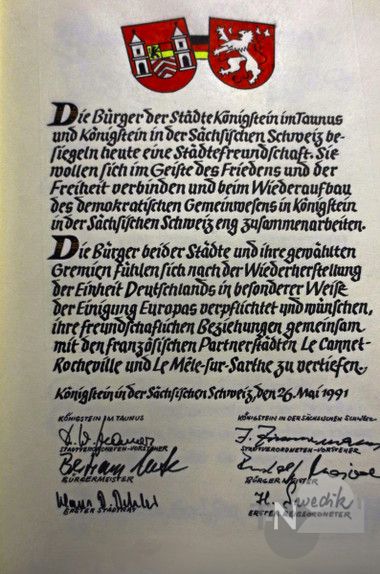 Die Bürger der Städte Königstein im Taunus
und Königstein in der Sächsischen Schweiz be-
siegeln heute eine Städtefreundschaft. Sie
wollen sich im Geiste des Friedens und der
Freiheit verbinden und beim Wiederaufbau
des demokratischen Gemeinwesens in Königstein
in der Sächsischen Schweiz eng zusammenarbeiten.
Die Bürger beider Städte und ihre gewählten
Gremien fühlen sich nach der Wiederherstellung
der Einheit Deutschlands in besonderer Weise
der Einigung Europas verpflichtet und wünschen,
ihre freundschaftlichen Beziehungen gemeinsam
mit den französischen Partnerstädten Le Cannet-
Rocheville und Le Mêle-sur-Sarthe zu vertiefen.
Königstein in der Sächsischen Schweiz, den 26. Mai 1991
KÖNIGSTEIN IM TAUNUS
STADTVERORDNETEN-VORSTEHER
Bertram
BÜRGERMEISTER
Klaus
ERSTER STADTRAT
KÖNIGSTEIN IN DER SÄCHSISCHEN SCHWEIZ
STADTVERORDNETEN-VORSTEHER
BÜRGERMEISTER
ERSTER BEIGEORDNETER
N